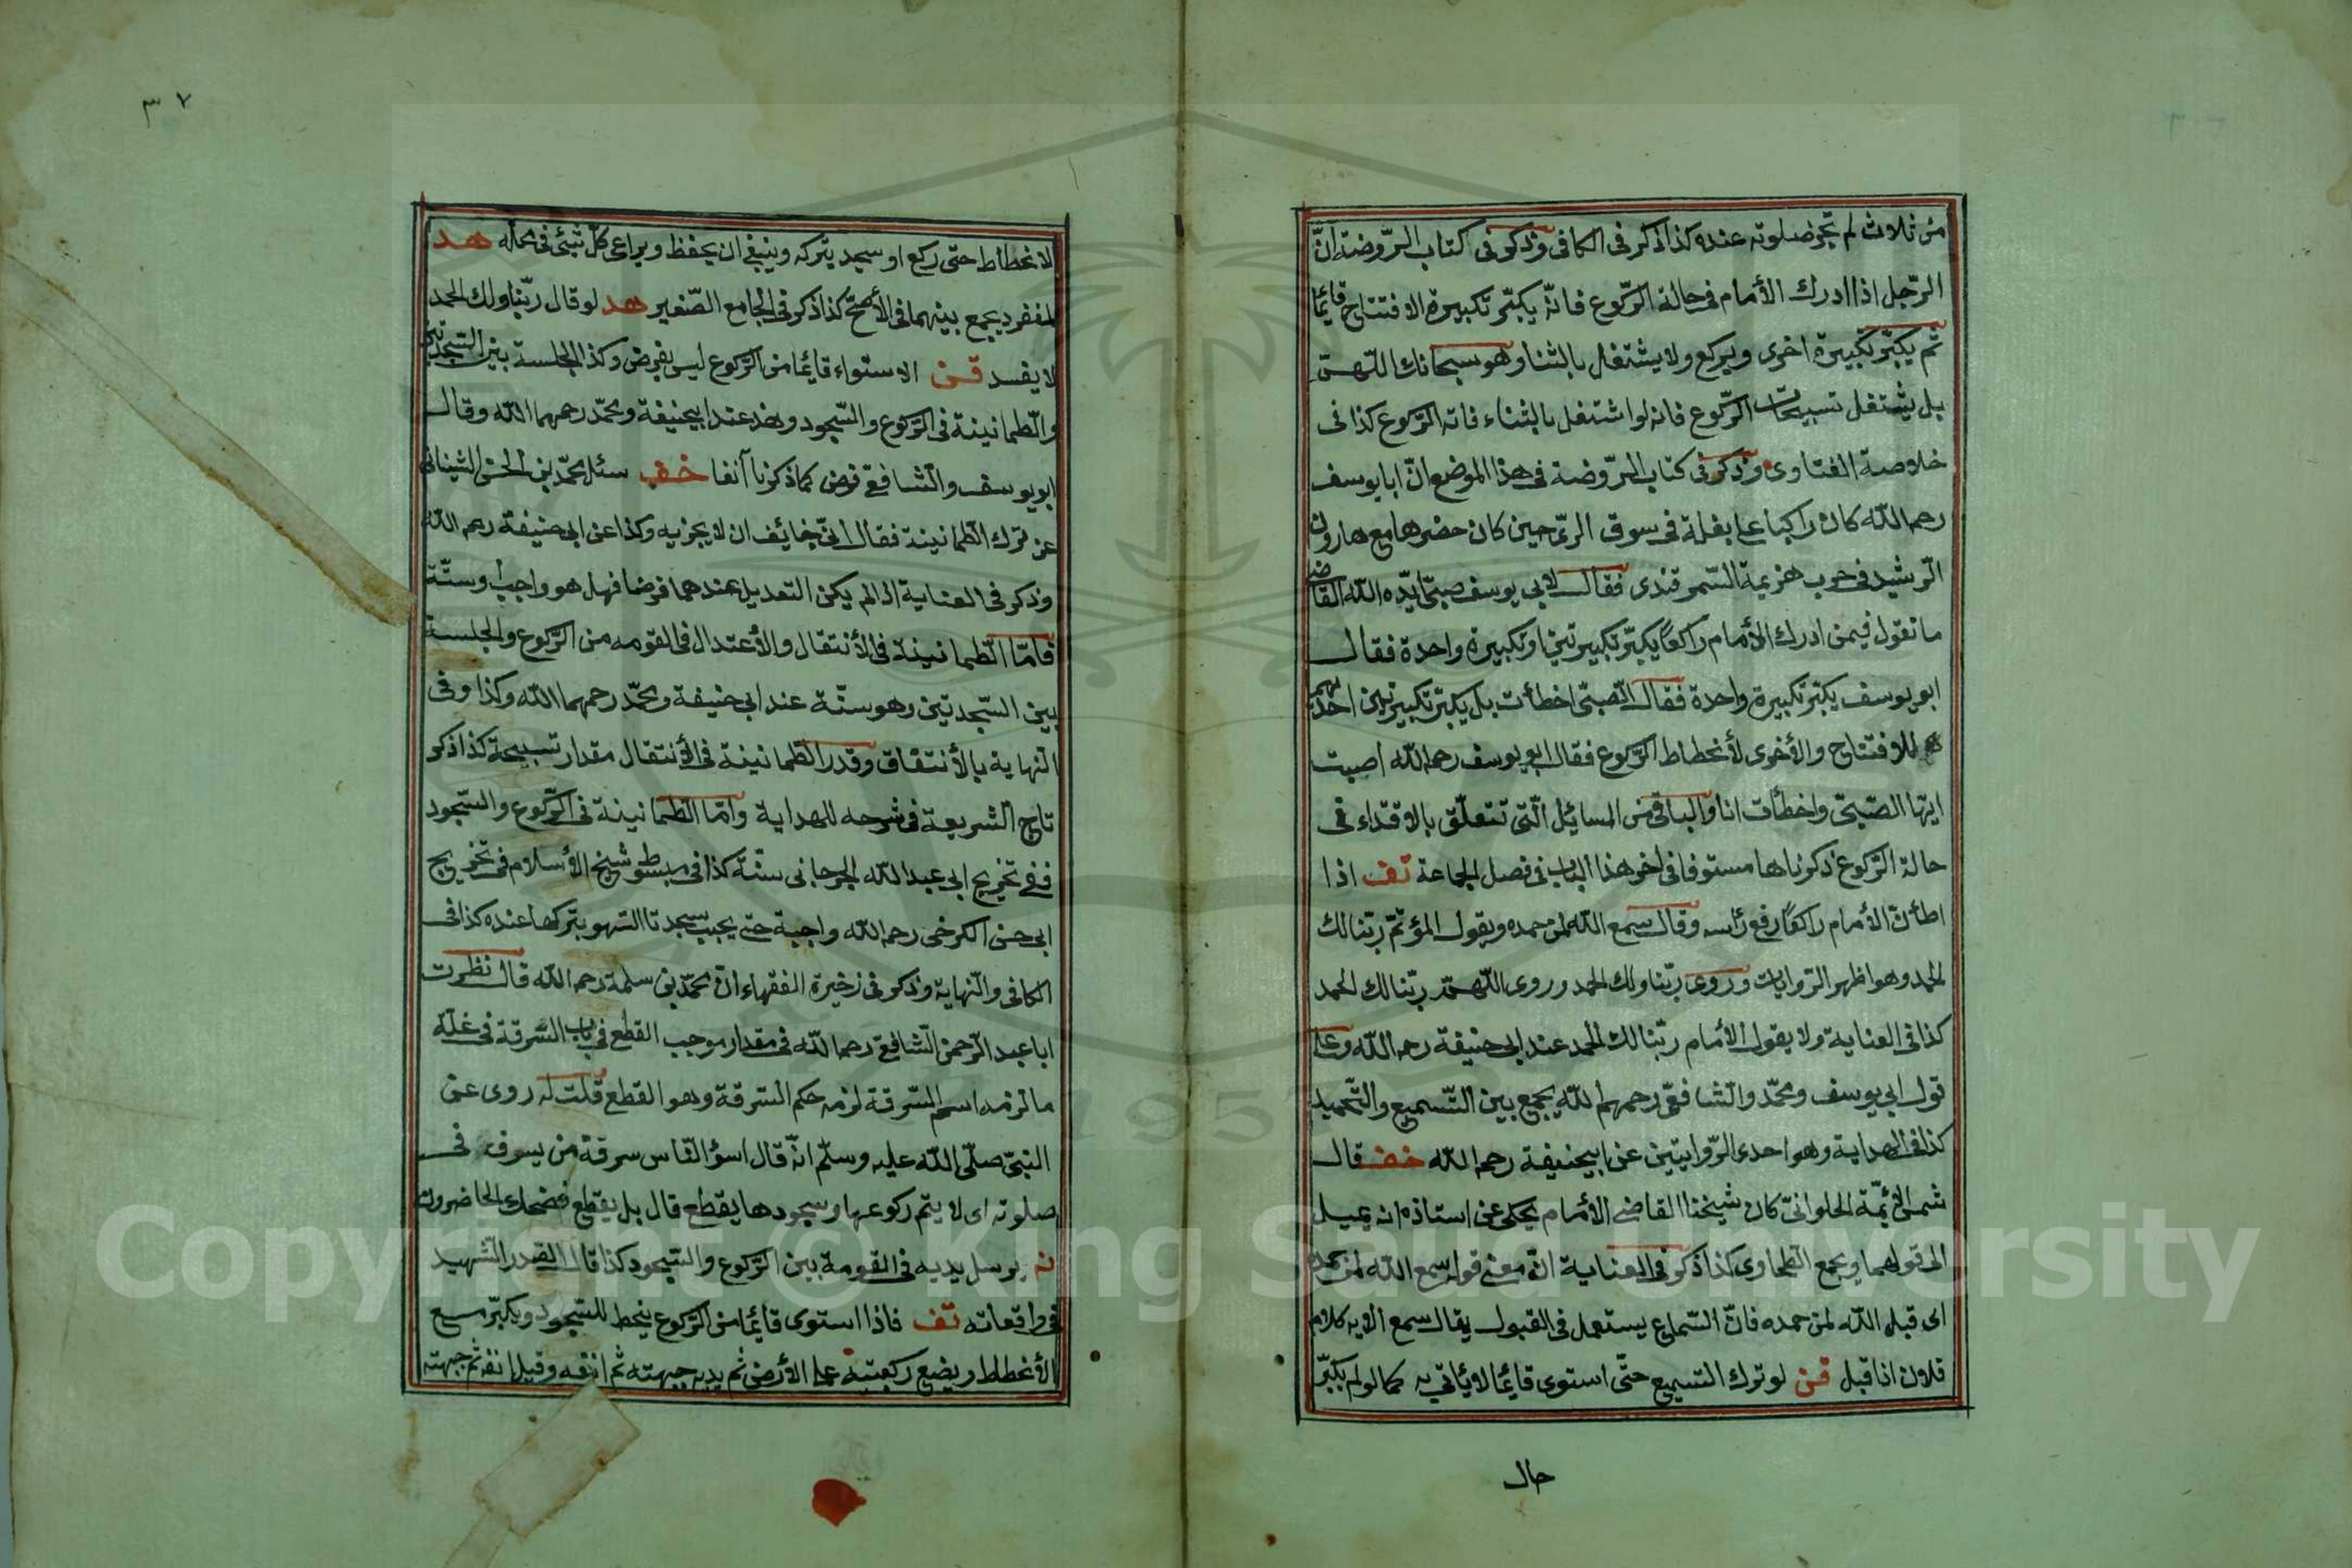 من ثلاث لم تجز صلوته عنده كذا ذكر فى الكافى وذكر فى كتاب الروضة انّ
الرّجل اذا ادرك الأمام فى حالة الرّكوع فانّه يكبّر تكبيرة الافتتاح قائما
ثم يكبّر تكبيرة اخرى ويركع ولا يشتغل بالثنا وهو سبحانك اللّهمّ
بل يشتغل تسبيحات الرّكوع فانه لو اشتغل بالثناء فاته الرّكوع كذا فى
خلاصة الفتاوى وذكر فى كتاب الرّوضة فى هذا الموضع انّ ابا يوسف
رحمه اللّه كان راكبا على بغلة فى سوق الرّى حين كان حضرها مع هارون
الرّشيد فى حرب هزيمة السّمرقندى فقال لابى يوسف صبىّ ايّده اللّه القاضى
ما تقول فيمن ادرك الأمام راكعًا يكبّر تكبيرتين او تكبيرة واحدة فقال
ابو يوسف يكبّر تكبيرة واحدة فقال الصّبىّ اخطأت بل يكبّر تكبيرتين احديهما
للافتتاح والأخرى لأنحطاط الرّكوع فقال ابو يوسف رحمه اللّه اصبت
ايّها الصّبىّ واخطأت انا والباقى من المسائل الّتى تتعلّق بالاقتداء فى
حالة الرّكوع ذكرناها مستوفا فى اخر هذا الباب فى فصل الجماعة تف اذا
اطمأنّ الأمام راكعًا رفع رأسه وقال سمع اللّه لمن حمده ويقول المؤتمّ ربّنا لك
الحمد وهو اظهر الرّوايات وروى ربّنا ولك الحمد وروى اللّهمّ ربّنا لك الحمد
كذا فى العناية ولا يقول الأمام ربّنا لك الحمد عند ابى حنيفة رحمه اللّه وعلى
قول ابى يوسف ومحمّد والشّافعّى رحمهم اللّه يجمع بين التّسميع والتّحميد
كذا فى الهداية وهو احدى الرّوايتين عن ابيحنيفة رحمه اللّه خف قال
شمس الأئمّة الحلوانىّ كان شيخنا القاضى الأمام يحكى عن استاذه انه يميل
الى قولهما ويجمع الطّحاوى كذا ذكر فى العناية انّ معنى قوله سمع اللّه لمن حمده
اى قبل اللّه لمن حمده فانّ السّماع يستعمل فى القبول يقال سمع الامير كلام
فلان اذا قبل قن لو ترك التسميع حتّى استوى قائما لا يأتى به كما لو لم يكبّر
حال
٣٧
الانحطاط حتّى ركع او سجد يتركه وينبغى ان يحفظ ويراعى كلّ شئ فى محلّه هد
المنفرد يجمع بينهما فى الأصحّ كذا ذكر فى الجامع الصّغير هد لو قال ربّنا ولك الحمد
لا يفسد قن الاستواء قائما من الرّكوع ليس بفرض وكذا الجلسة بين السّجدتين
والطّمانينة فى الرّكوع والسّجود وهذ عند ابيحنيفة ومحمّد رحمهما اللّه وقال
ابو يوسف والشّافعى فرض كما ذكرنا آنفا خف سئل محمّد بن الحسن الشيبانى
عن ترك الطّمانينة فقال انّى خائف ان لا يجزيه وكذا عن ابى حنيفة رحمه اللّه
وذكر فى العناية اذا لم يكن التعديل عندهما فرضا فهل هو واجب او سنّة
فامّا الطّمانينة فى الأنتقال والأعتدال فى القومه من الرّكوع والجلسة
بين السّجدتين وهو سنّة عند ابى حنيفة ومحمّد رحمهما اللّه وكذا وفى
النّهاية بالأتّفاق وقدر الطّمانينة فى الأنتقال مقدار تسبيحة كذا ذكر
تاج الشّريعة فى شرحه للهداية وامّا الطّمانينة فى الرّكوع والسّجود
ففى تخريج ابى عبد اللّه الجرجانى سنّة كذا فى مبسوط شيخ الأسلام فى تخريج
ابى حسن الكرخى رحمه اللّه واجبة حتى يجب سجدتا السّهو بتركها عنده كذا فى
الكافى والنّهاية وذكر فى زخيرة الفقهاء انّ محمّد بن سلمة رحمه اللّه قال نظرت
ابا عبد الرّحمن الشّافعى رحمه اللّه فى مقدار موجب القطع فى باب السّرقة فى علّة
ما لزمه اسم السّرقة لزمه حكم السّرقة وهو القطع قلت له روى عن
النبىّ صلّى اللّه عليه وسلّم انّه قال اسؤ النّاس سرقة من يسرق فى
صلوته اى لا يتمّ ركوعها وسجودها يقطع قال بل يقطع فضحك الحاضرون
نم يرسل يديه فى القومة بين الرّكوع والسّجود كذا قال الصّدر الشّهيد
فى واقعاته تف فاذا استوى قائما من الرّكوع ينحط للسّجود ويكبّر مع
الأنحطاط ويضع ركبتيه على الأرض ثم يديه جبهته ثم انفه وقيل انفه ثم جبهته
Copyright © King Saud University